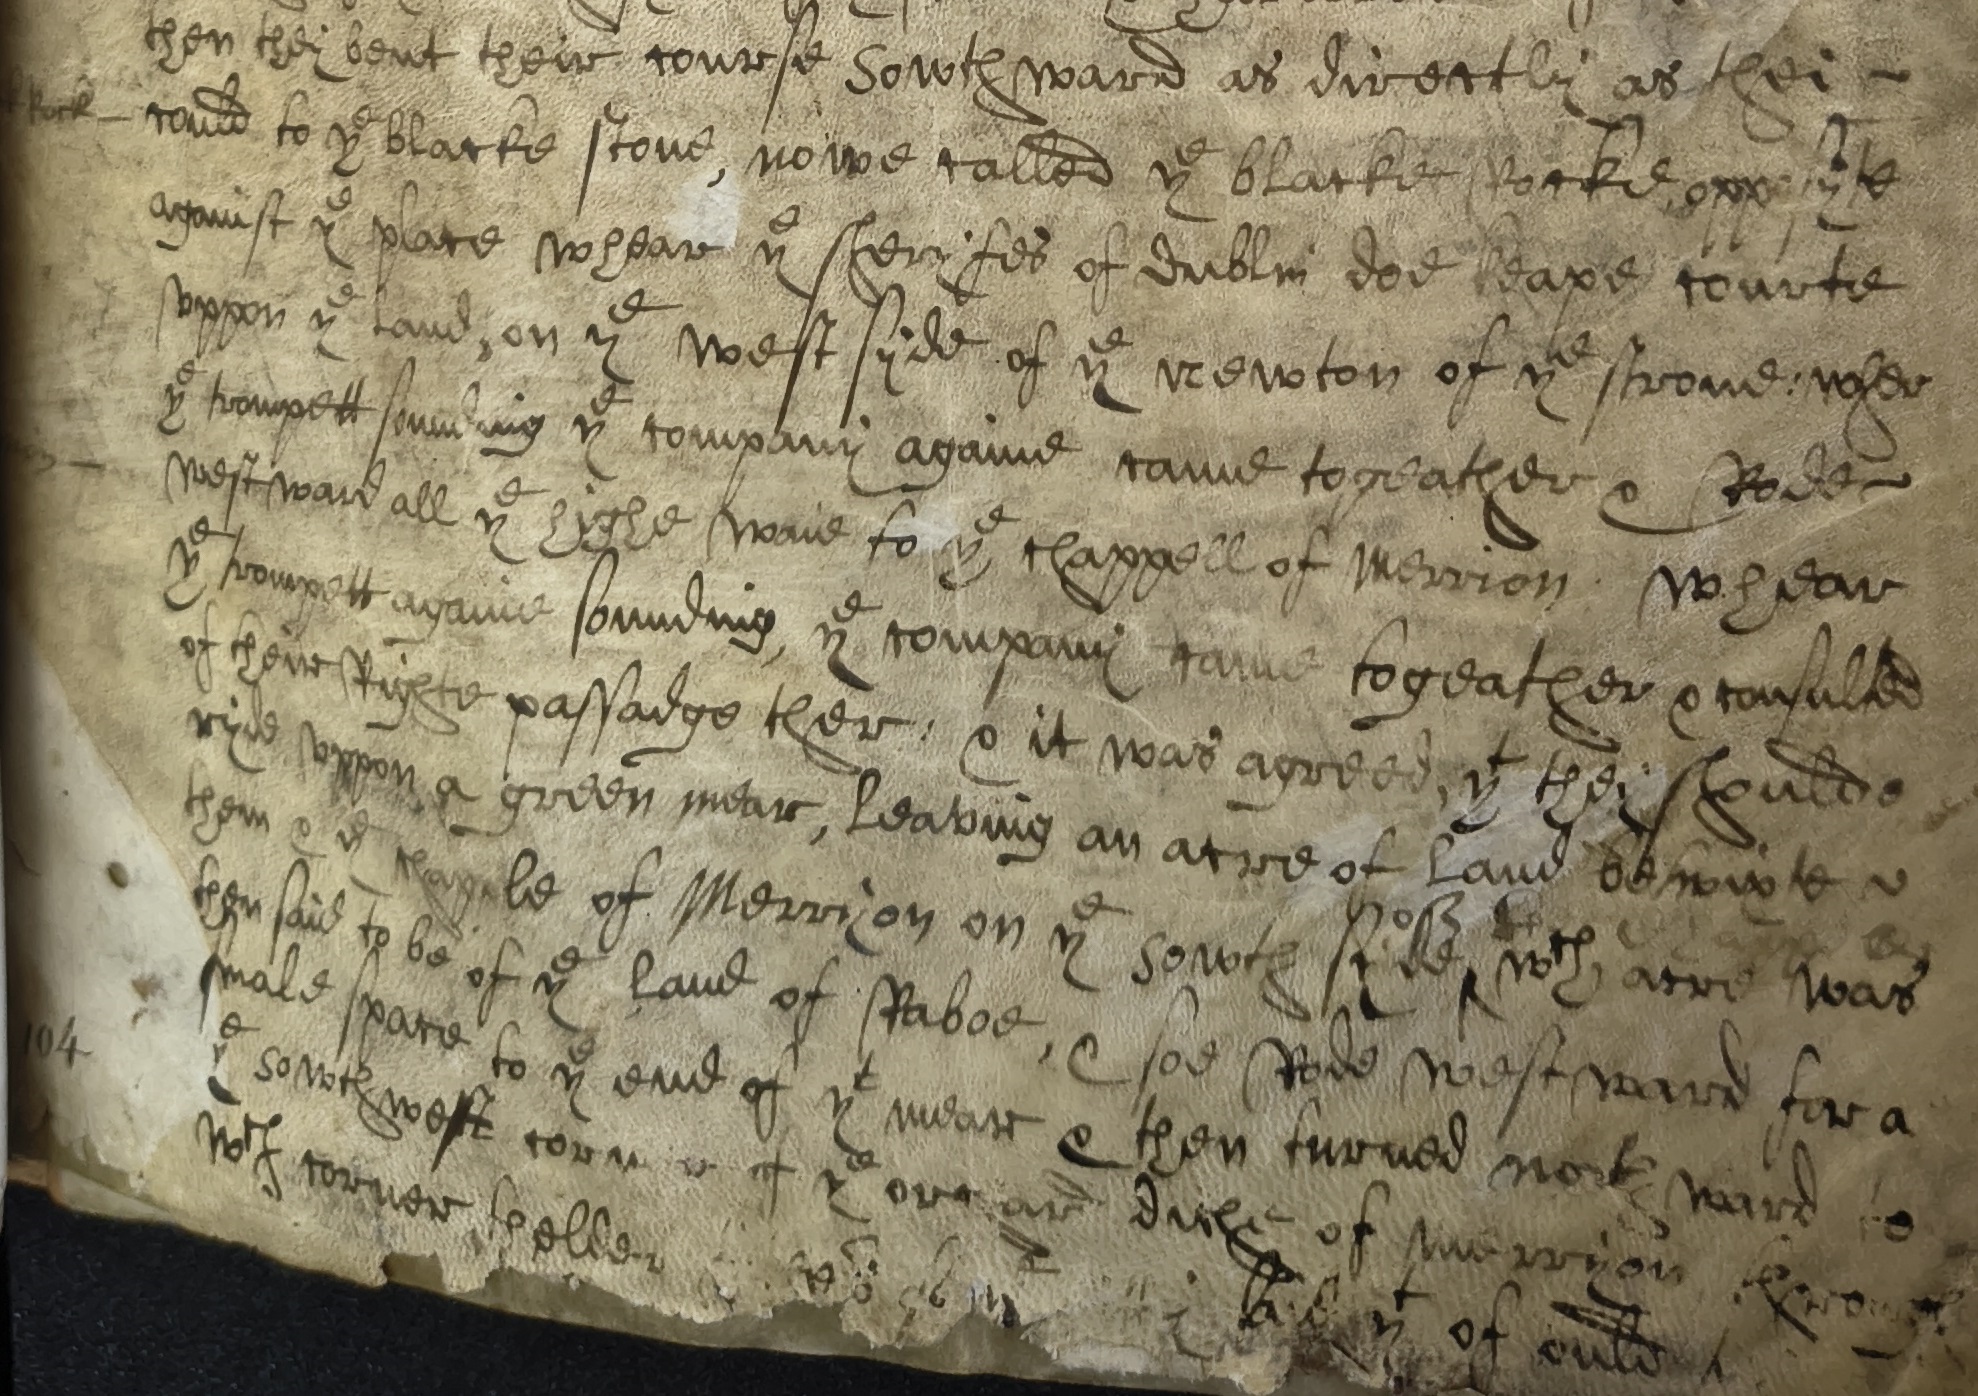 then thei bent their course Sowthward as directly as thei
Rock
could to yᵉ blacke stone, nowe called yᵉ blacke Rocke, opposyte
against yᵉ place whear yᵉ sheryfes of dublin doe keape courte
vppon yᵉ land, on yᵉ west syde of yᵉ newton of yᵉ strone: wher
yᵉ trompett sounding yᵉ company againe came togeather & Rode
westward all yᵉ highe waie to yᵉ chappell of Merrion. whear
yᵉ trompett againe sounding, yᵉ company came togeather & consulted
of their Righte passadge ther: & it was agreed, yᵗ they shoulde
ryde vppon a green mear, leaving an acre of land betwixte
them & yᵉ chapple of Merryon on yᵉ sowth syde, wᶜʰ acre was
then said to be of yᵉ land of Raboe, & soe Rode westward for a
smale space to yᵉ end of yᵗ mear & then turned northward to
104
yᵉ sowthwest corner of yᵉ orcard diche of Merryon
wᶜʰ corner by yᵗ of ould